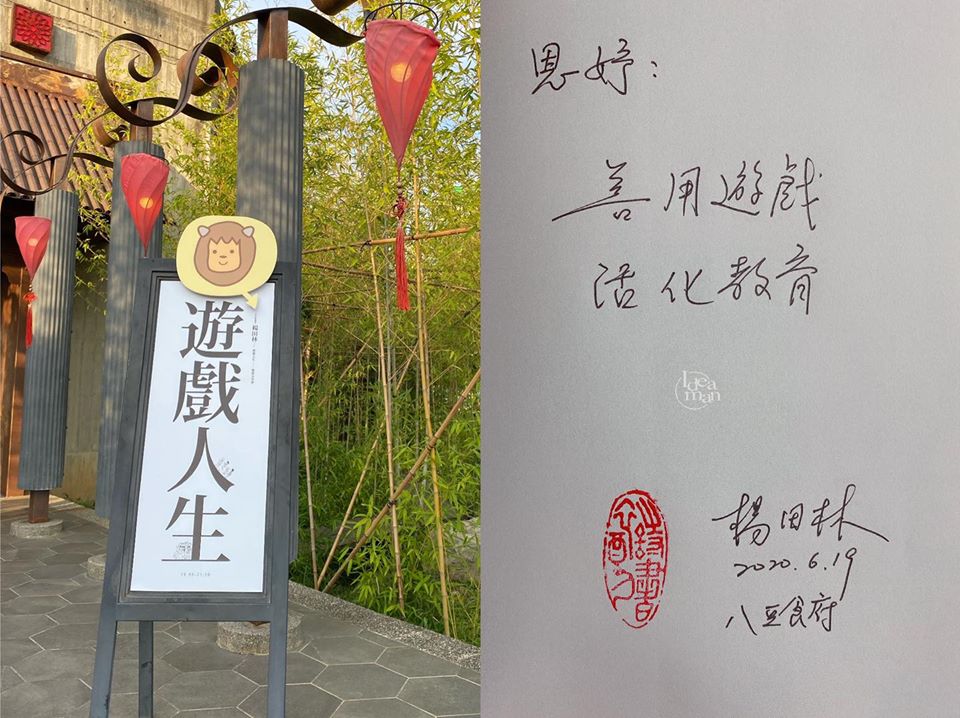 遊戲人生
楊田林
恩妤：
善用遊戲
活化教育
Idea
man
楊田林
2020.6.19
八豆食府